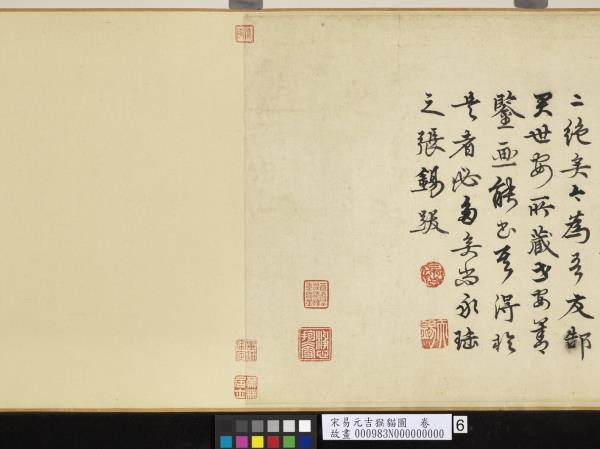 二絕矣今為吾友郜
君世安所藏世安善
鑒画能書其得於
是者必多矣尚永珤
之張錫跋
宋易元吉猴貓圖 卷
故畫 000983N000000000
6